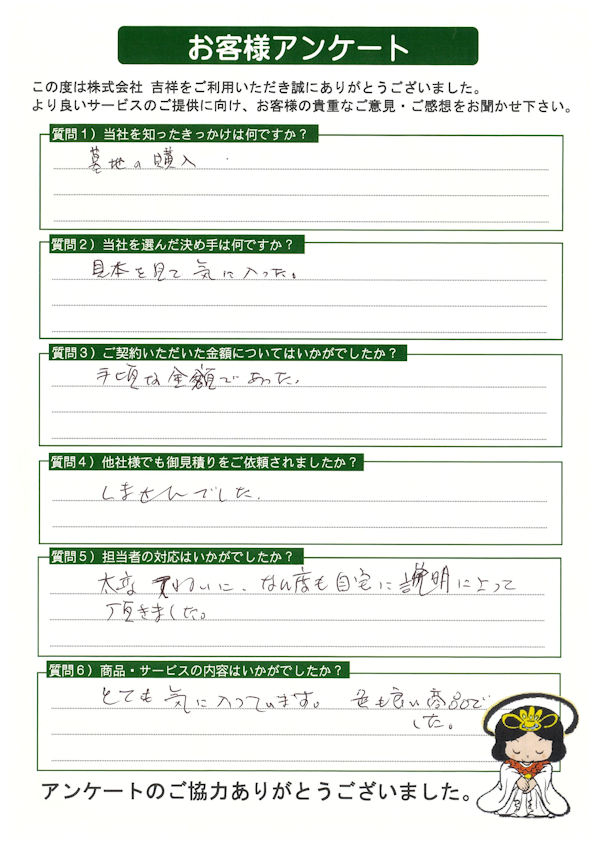 お客様アンケート
この度は株式会社 吉祥をご利用いただき誠にありがとうございました。
より良いサービスのご提供に向け、お客様の貴重なご意見・ご感想をお聞かせ下さい。
質問1）当社を知ったきっかけは何ですか？
墓地の購入
質問2）当社を選んだ決め手は何ですか？
見本を見て気に入った。
質問3）ご契約いただいた金額についてはいかがでしたか？
手頃な金額であった。
質問4）他社様でも御見積りをご依頼されましたか？
しませんでした。
質問5）担当者の対応はいかがでしたか？
大変ていねいに、なん度も自宅に説明によって
頂きました。
質問6）商品・サービスの内容はいかがでしたか？
とても気に入っています。 色も良い商品で
した。
アンケートのご協力ありがとうございました。